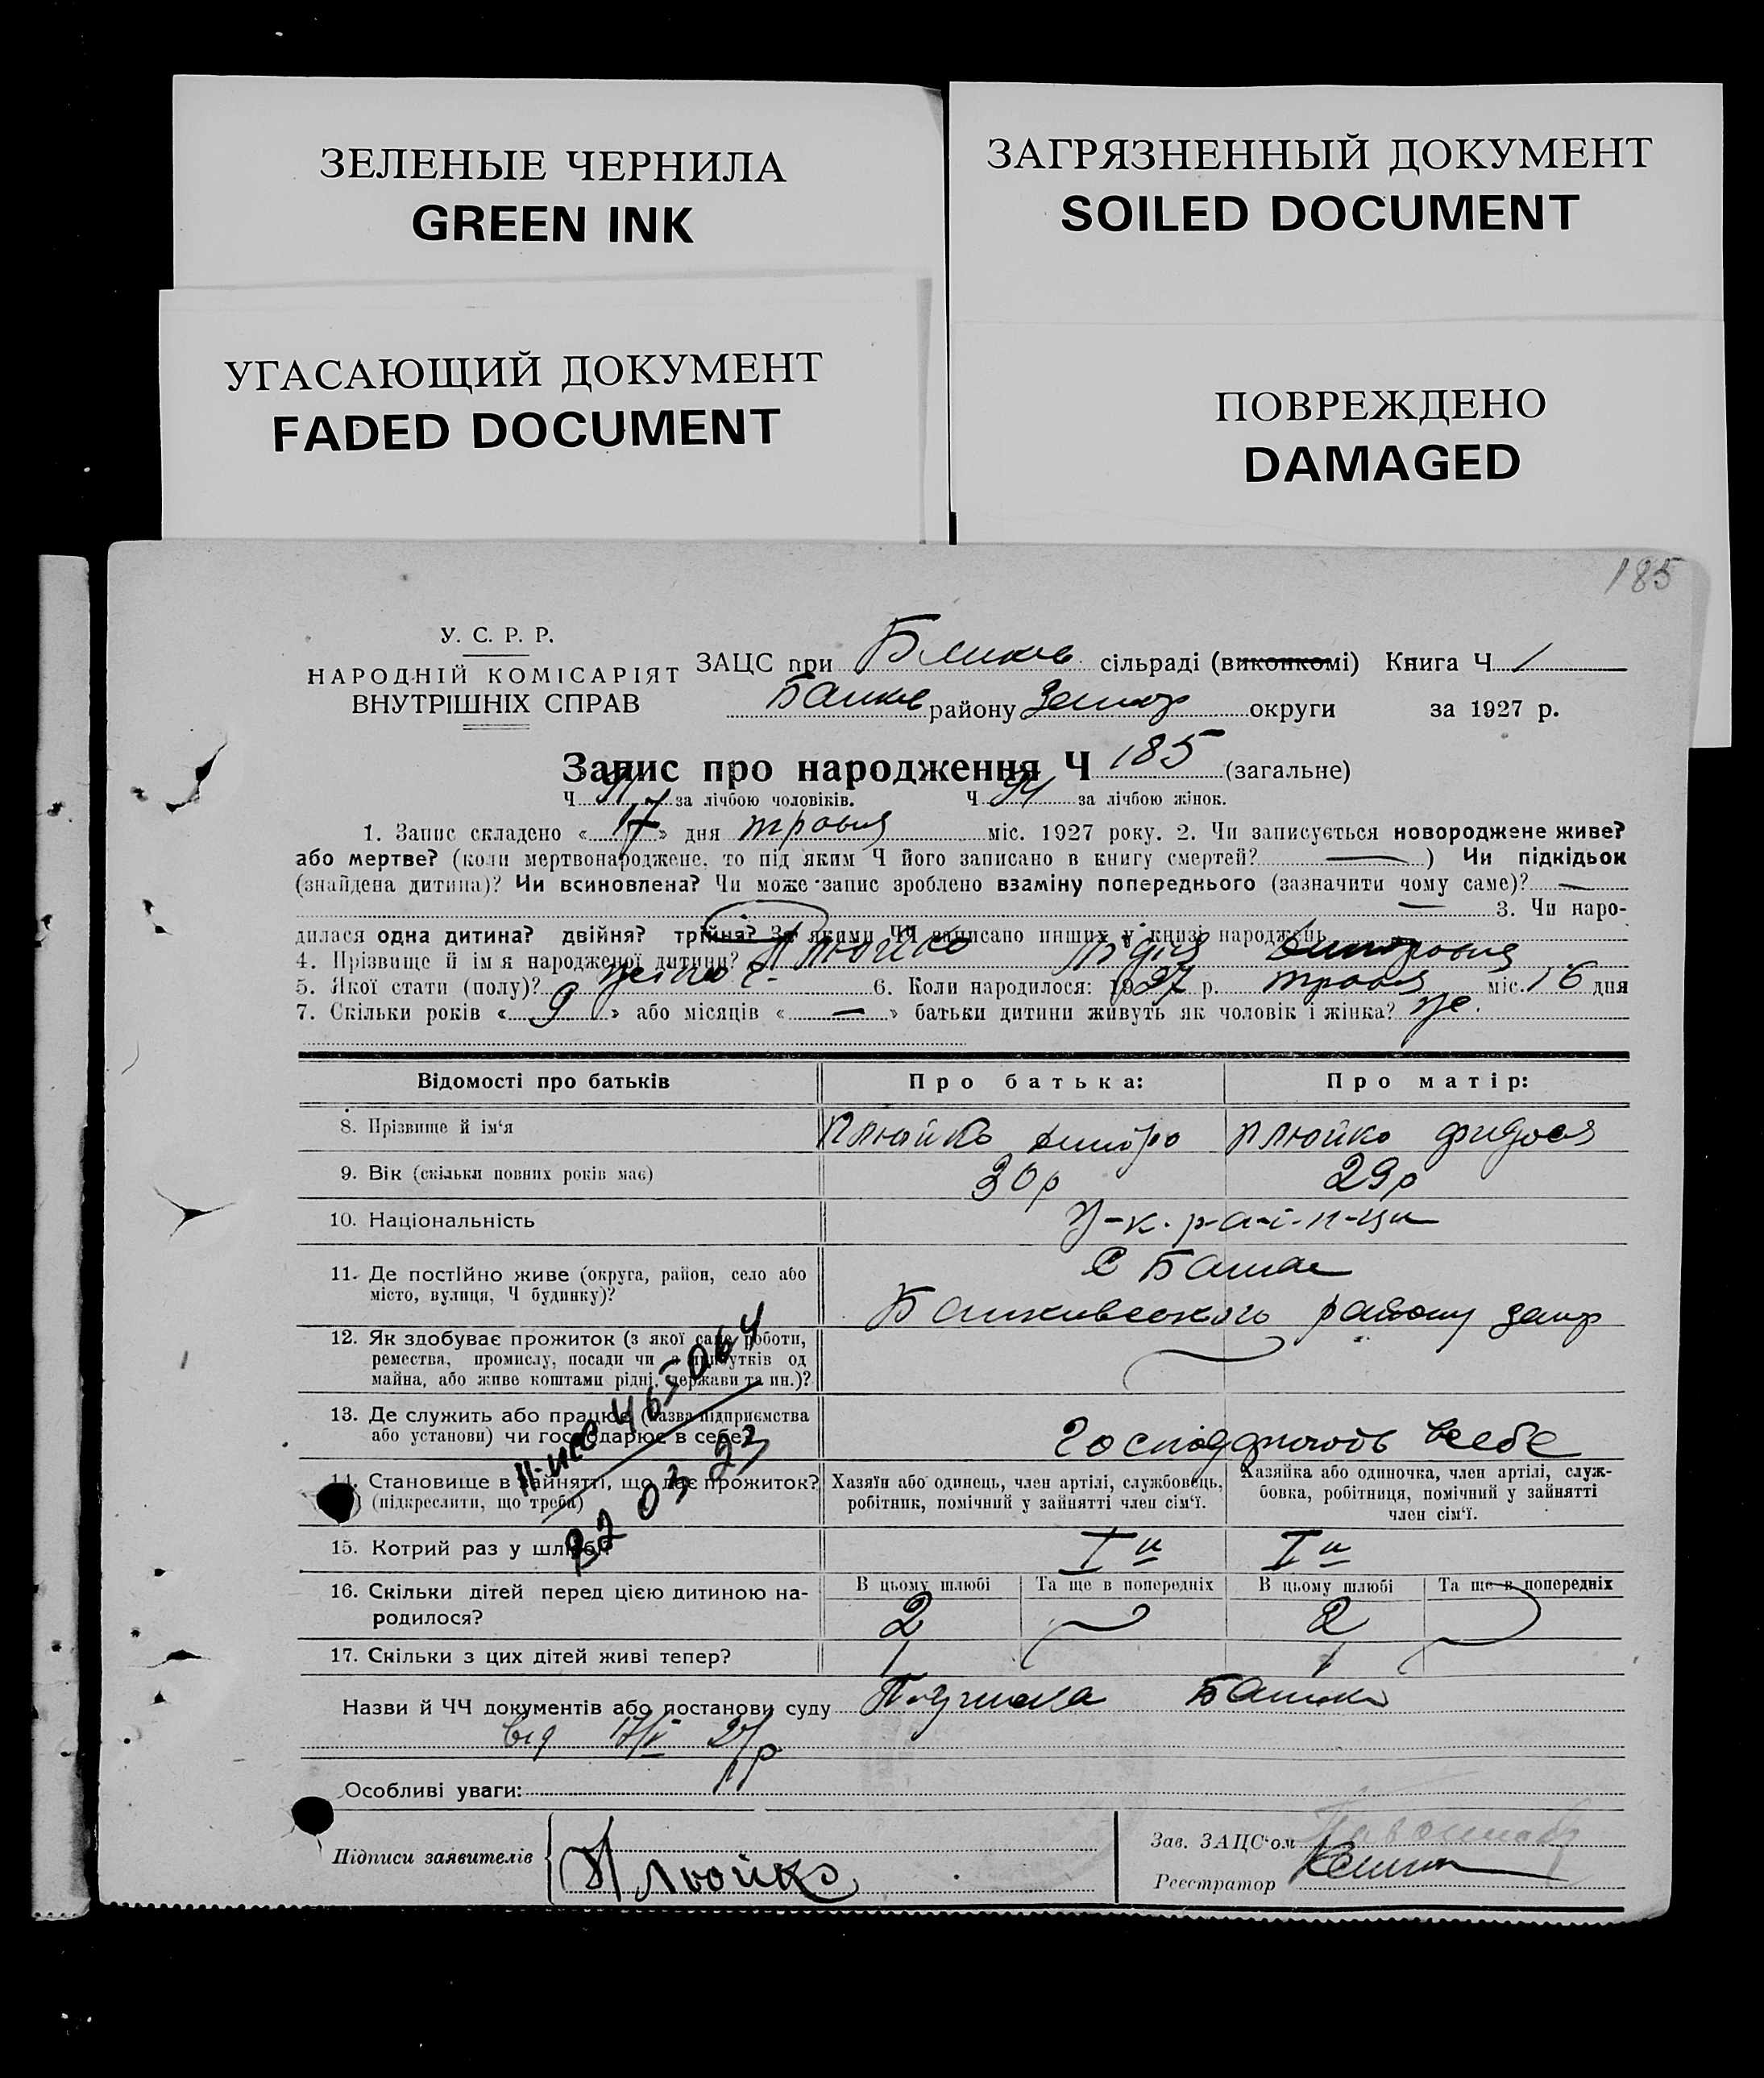 ЗЕЛЕНЫЕ ЧЕРНИЛА
GREEN INK
ЗАГРЯЗНЕННЫЙ ДОКУМЕНТ
SOILED DOCUMENT
УГАСАЮЩИЙ ДОКУМЕНТ
FADED DOCUMENT
ПОВРЕЖДЕНО
DAMAGED
185
У. С. Р. Р.
НАРОДНІЙ КОМІСАРІЯТ
ВНУТРІШНІХ СПРАВ
ЗАЦС при сільраді (виконкомі) Книга Ч 1
району округи за 1927 р.
Запис про народження Ч 185 (загальне)
Ч 91 за лічбою чоловіків. Ч 94 за лічбою жінок.
1. Запис складено « 17 » дня травня міс. 1927 року. 2. Чи записується новороджене живе?
або мертве? (коли мертвонароджене, то під яким Ч його записано в книгу смертей? — ) Чи підкідьок
(знайдена дитина)? Чи всиновлена? Чи може запис зроблено взаміну попереднього (зазначити чому саме)? —
— 3. Чи наро-
дилася одна дитина? двійня? трійня? За якими ЧЧ записано инших у книзі народжень
4. Прізвище й ім'я народженої дитини? Плюйко Лідія
5. Якої стати (полу)? жіноч. 6. Коли народилося: 1927 р. травня міс. 16 дня
7. Скільки років « 9 » або місяців « — » батьки дитини живуть як чоловік і жінка?
Відомості про батьків Про батька: Про матір:
8. Прізвище й ім'я Плюйко Дмітро Плюйко Фидося
9. Вік (скільки повних років має) 30р 29р
10. Національність У-к-р-а-ї-н-ци
11. Де постійно живе (округа, район, село або
місто, вулиця, Ч будинку)?
С
району запр
12. Як здобуває прожиток (з якої саме роботи,
ремества, промислу, посади чи з прибутків од
майна, або живе коштами рідні, держави та ин.)?
13. Де служить або працює (назва підприємства
або установи) чи господарює в себе?
14. Становище в зайнятті, що дає прожиток?
(підкреслити, що треба)
Хазяїн або одинець, член артілі, службовець,
робітник, помічний у зайнятті член сім'ї.
Хазяйка або одиночка, член артілі, служ-
бовка, робітниця, помічний у зайнятті
член сім'ї.
15. Котрий раз у шлюбі? Iй Iй
16. Скільки дітей перед цією дитиною на-
родилося?
В цьому шлюбі Та ще в попередніх В цьому шлюбі Та ще в попередніх
2 2
17. Скільки з цих дітей живі тепер? 1 1
Назви й ЧЧ документів або постанови суду
від 17/V 27р
Особливі уваги:
Підписи заявителів Плюйко
Зав. ЗАЦС'ом
Реєстратор